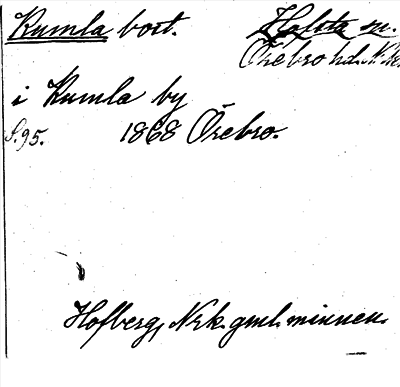 Kumla bost. Holsta sn.
Örebro hd. Nke
i Kumla by
S. 95. 1868 Örebro.
Hofberg, Nrk. gml. minnen.